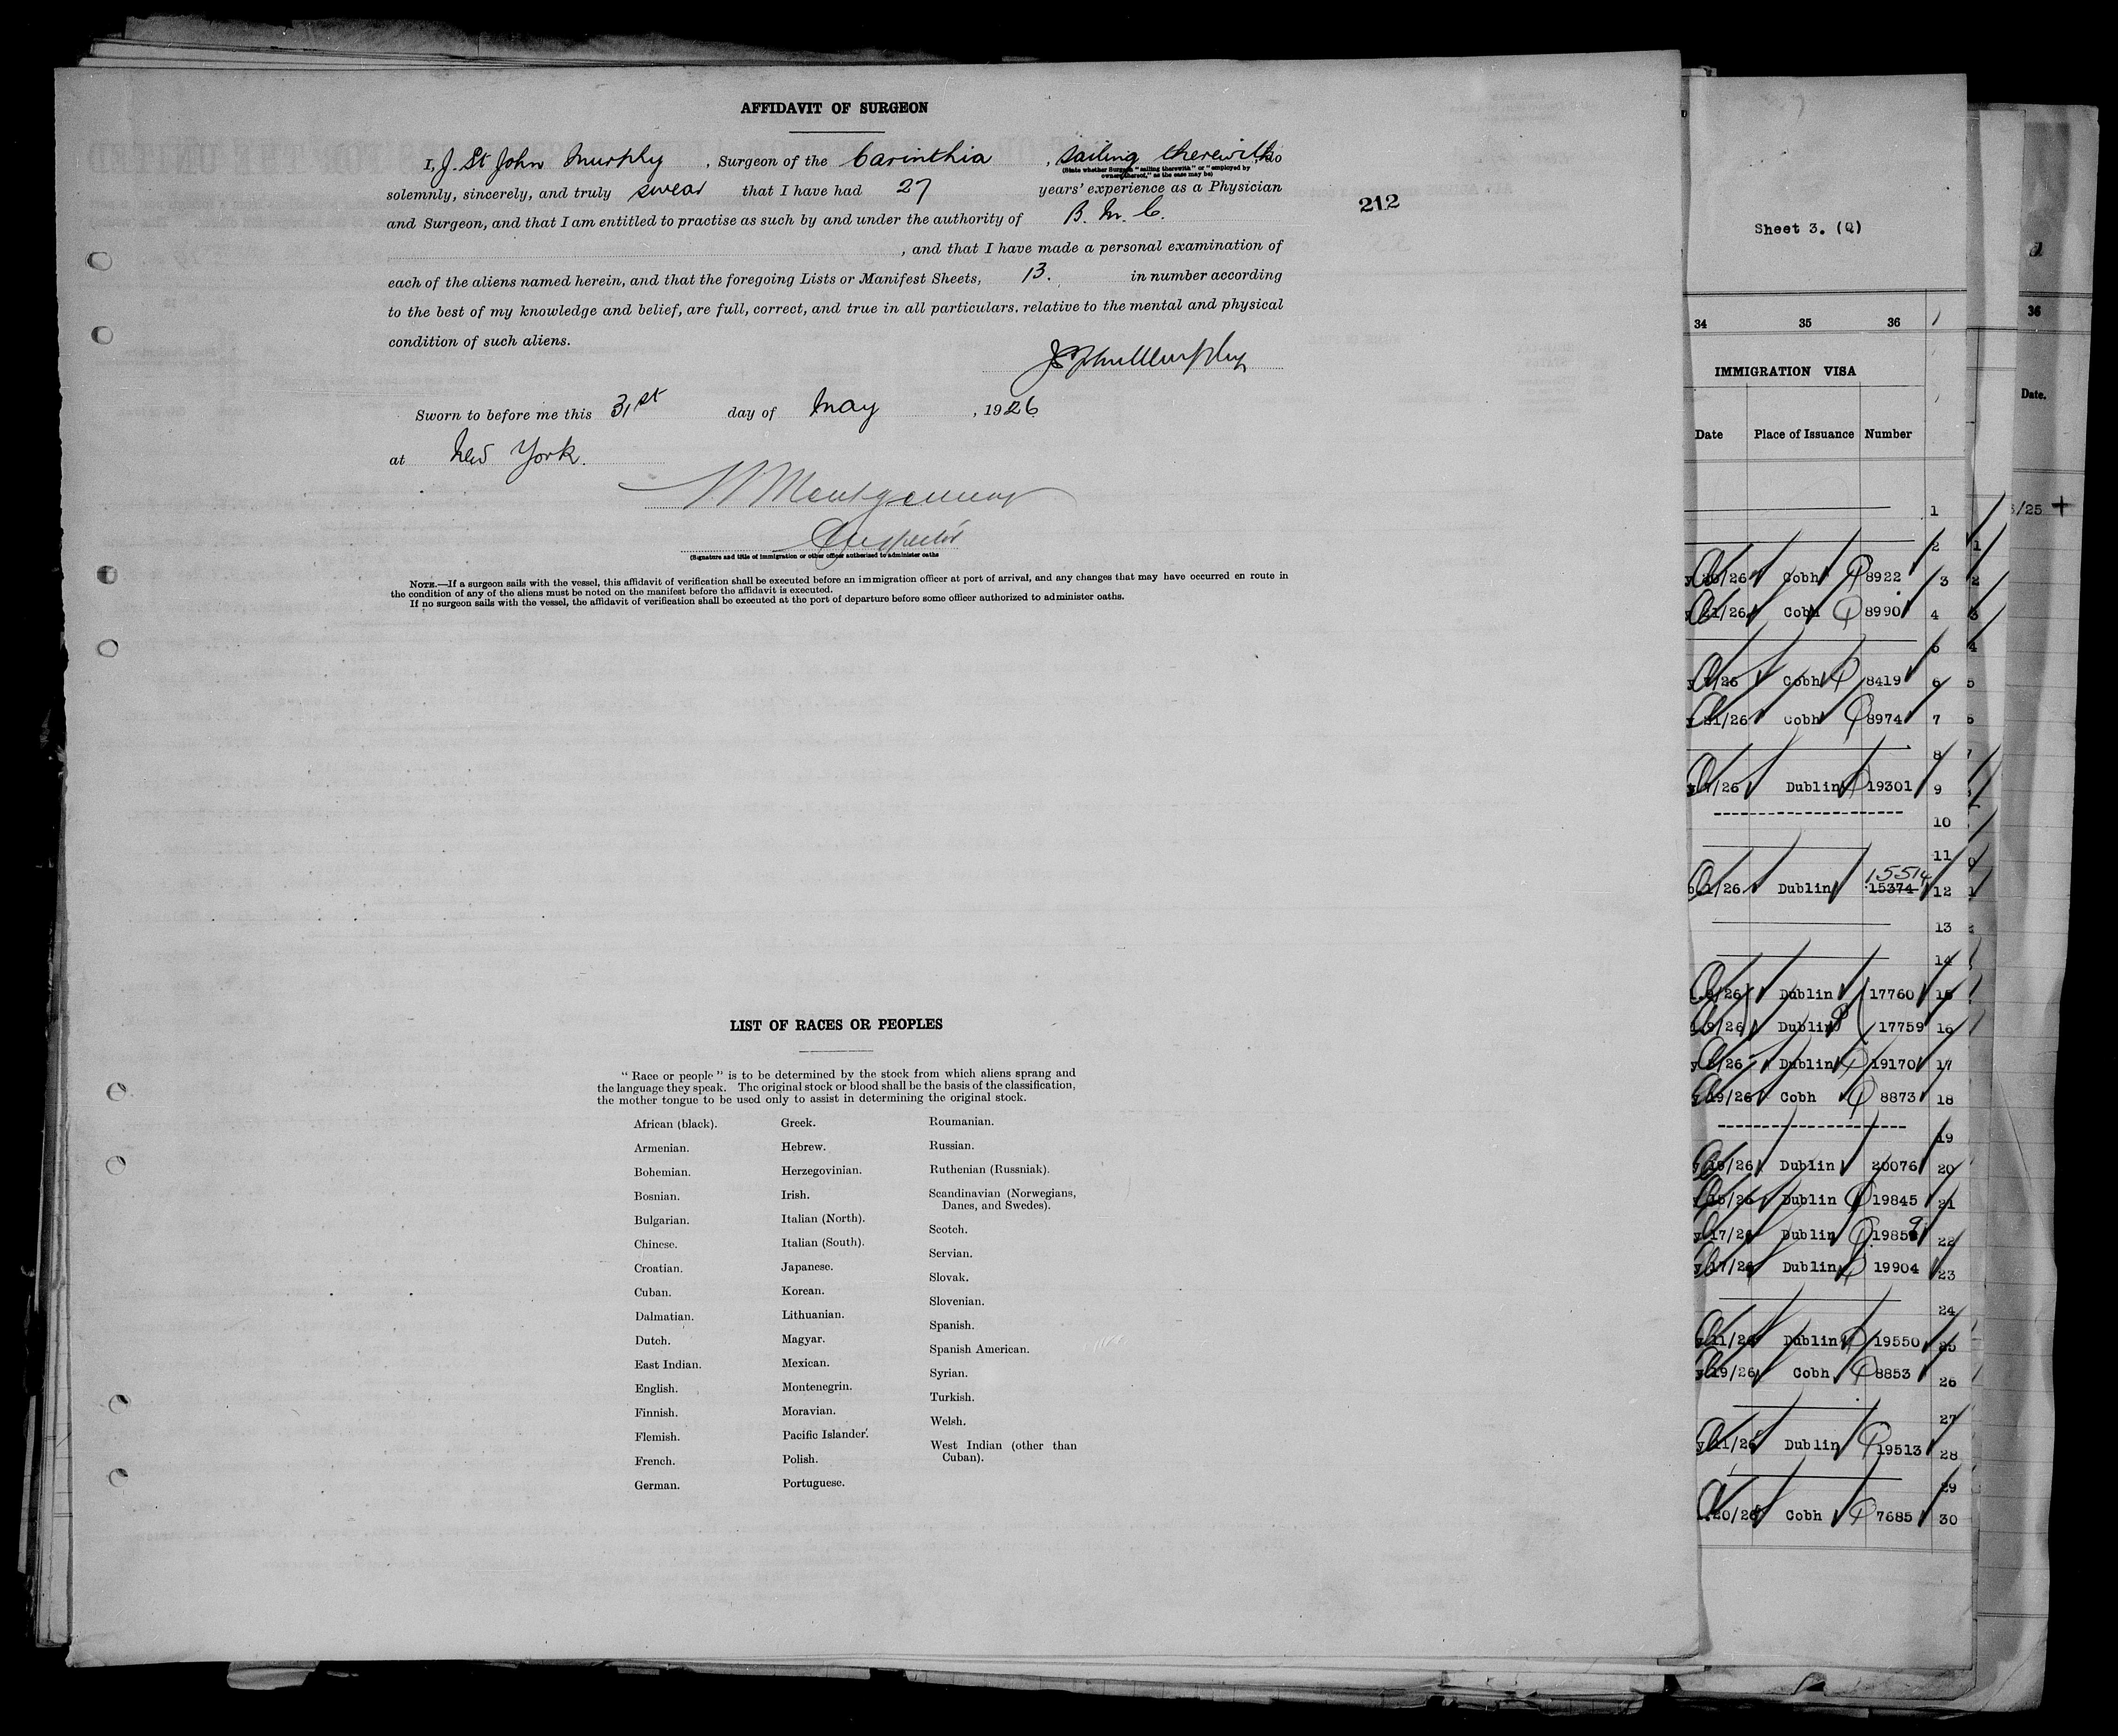 AFFIDAVIT OF SURGEON
I, J. St John Murphy, Surgeon of the Carinthia, sailing therewith, do
(State whether Surgeon "sailing therewith" or "employed by
owners thereof," as the case may be)
solemnly, sincerely, and truly swear that I have had 27 years' experience as a Physician
and Surgeon, and that I am entitled to practise as such by and under the authority of B. M. C.
, and that I have made a personal examination of
each of the aliens named herein, and that the foregoing Lists or Manifest Sheets, 13. in number according
to the best of my knowledge and belief, are full, correct, and true in all particulars, relative to the mental and physical
condition of such aliens.
J St John Murphy
Sworn to before me this 31st day of May, 1926
at New York.
Montgomery
Inspector
(Signature and title of immigration or other officer authorized to administer oaths
NOTE.—If a surgeon sails with the vessel, this affidavit of verification shall be executed before an immigration officer at port of arrival, and any changes that may have occurred en route in
the condition of any of the aliens must be noted on the manifest before the affidavit is executed.
If no surgeon sails with the vessel, the affidavit of verification shall be executed at the port of departure before some officer authorized to administer oaths.
212
LIST OF RACES OR PEOPLES
"Race or people" is to be determined by the stock from which aliens sprang and
the language they speak. The original stock or blood shall be the basis of the classification,
the mother tongue to be used only to assist in determining the original stock.
African (black).
Armenian.
Bohemian.
Bosnian.
Bulgarian.
Chinese.
Croatian.
Cuban.
Dalmatian.
Dutch.
East Indian.
English.
Finnish.
Flemish.
French.
German.
Greek.
Hebrew.
Herzegovinian.
Irish.
Italian (North).
Italian (South).
Japanese.
Korean.
Lithuanian.
Magyar.
Mexican.
Montenegrin.
Moravian.
Pacific Islander.
Polish.
Portuguese.
Roumanian.
Russian.
Ruthenian (Russniak).
Scandinavian (Norwegians,
Danes, and Swedes).
Scotch.
Servian.
Slovak.
Slovenian.
Spanish.
Spanish American.
Syrian.
Turkish.
Welsh.
West Indian (other than
Cuban).
Sheet 3. (Q)
34 35 36
IMMIGRATION VISA
Date Place of Issuance Number
1
2
/26 Cobh 8922 3
21/26 Cobh 8990 4
5
7/26 Cobh 8419 6
21/26 Cobh 8974 7
8
7/26 Dublin 19301 9
10
11
15514
1/26 Dublin 15374 12
13
14
9/26 Dublin 17760 15
9/26 Dublin 17759 16
/26 Dublin 19170 17
19/26 Cobh 8873 18
19
19/26 Dublin 20076 20
15/26 Dublin 19845 21
17/26 Dublin 19859 22
17/26 Dublin 19904 23
24
11/26 Dublin 19550 25
19/26 Cobh 8853 26
27
11/26 Dublin 19513 28
29
20/26 Cobh 7685 30
36
Date.
/25 +